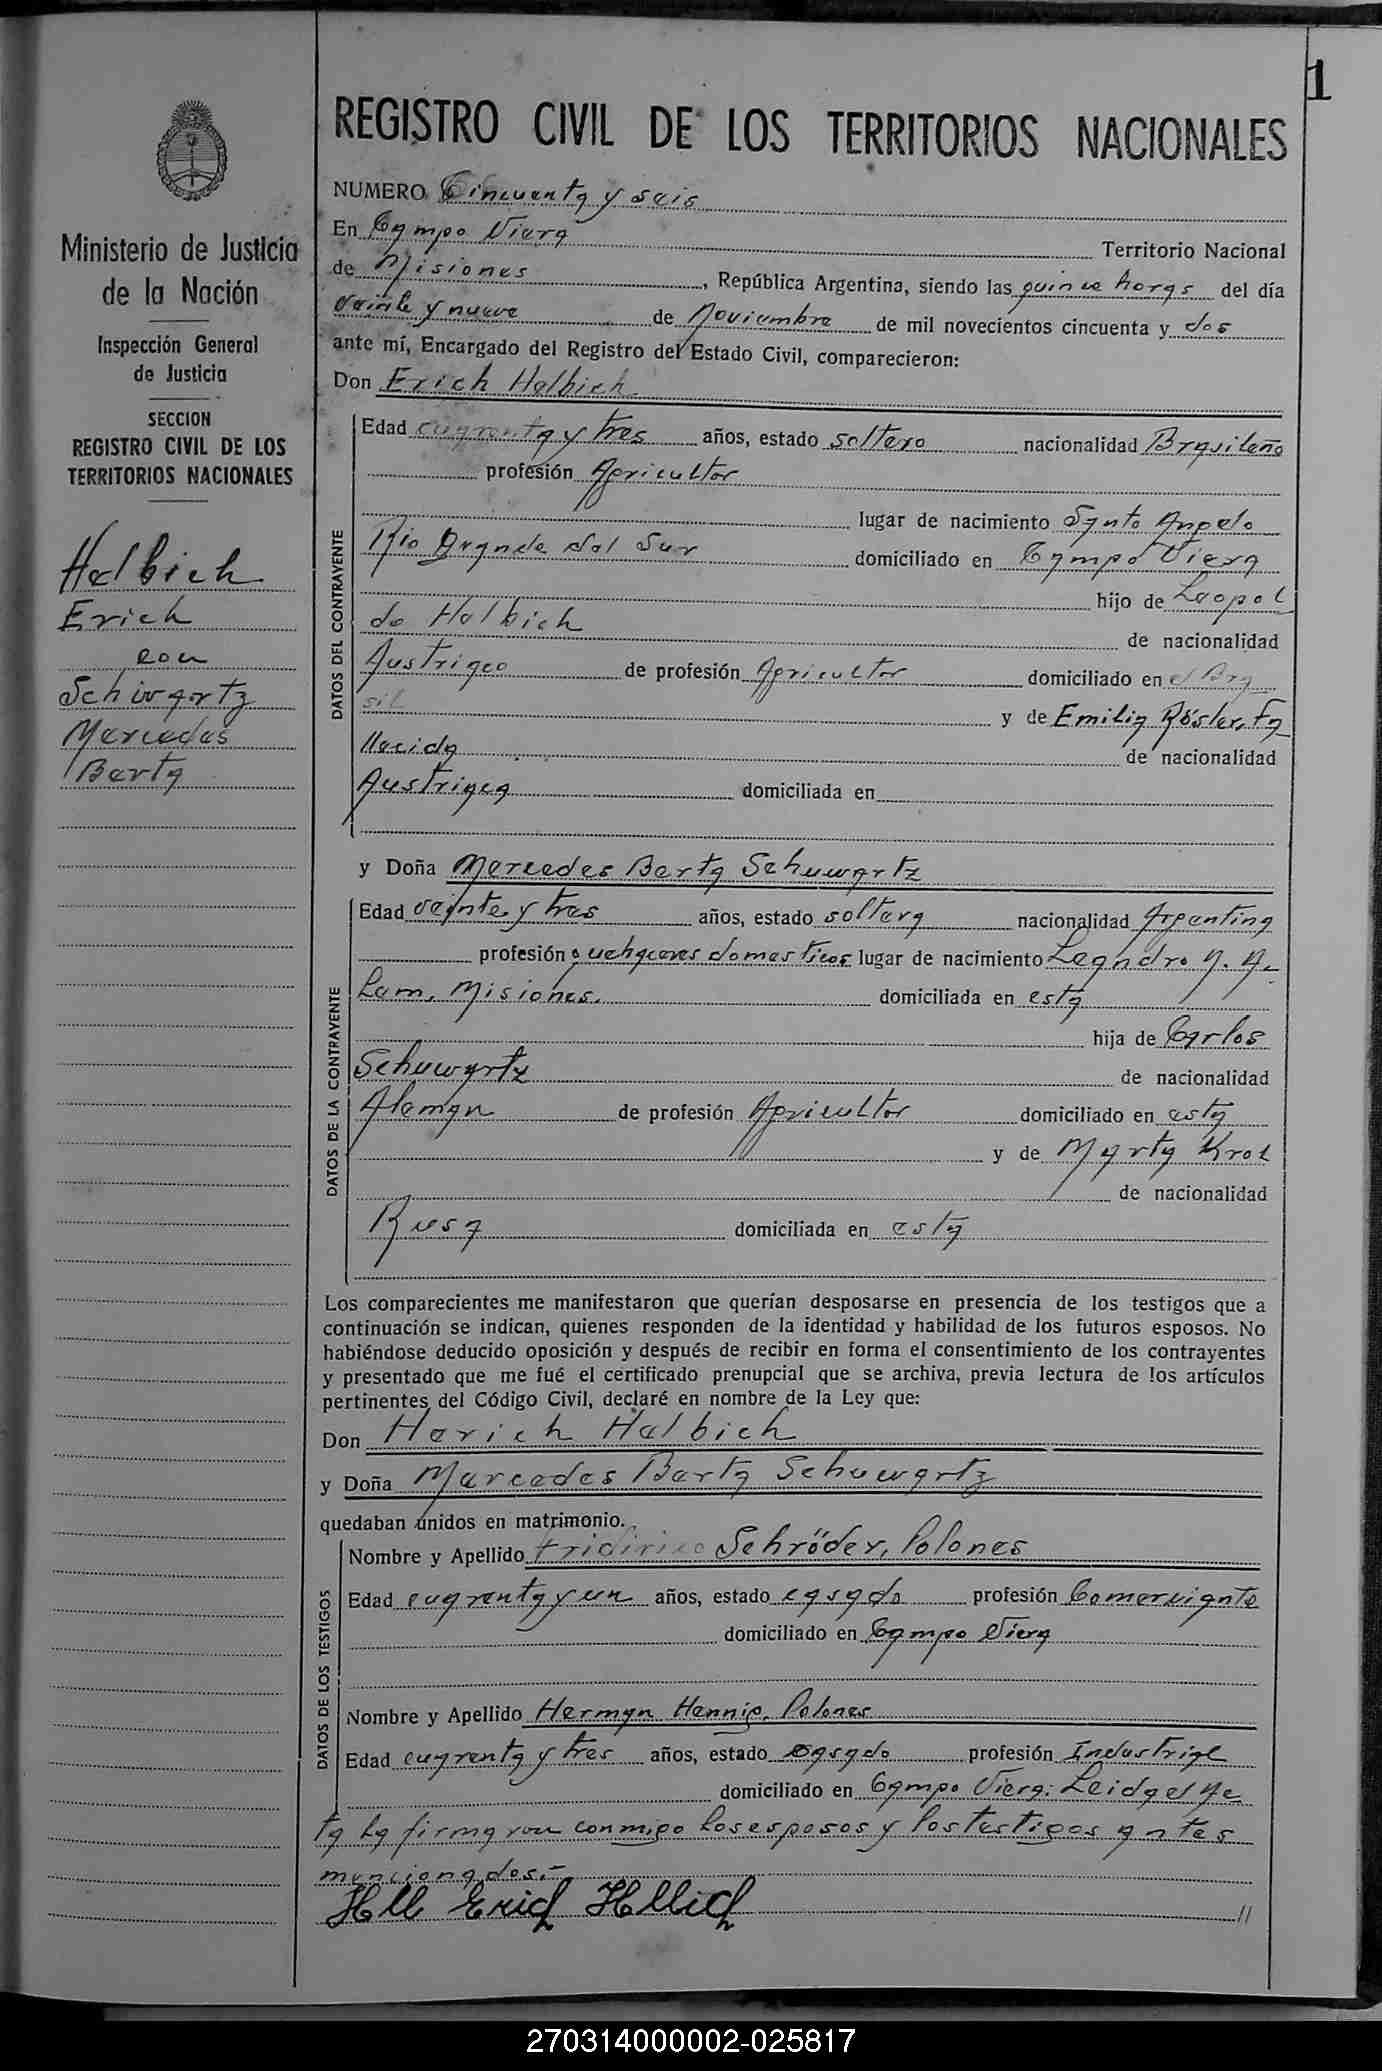 1
REGISTRO CIVIL DE LOS TERRITORIOS NACIONALES
Ministerio de Justicia
de la Nación
Inspección General
de Justicia
SECCION
REGISTRO CIVIL DE LOS
TERRITORIOS NACIONALES
Halbich
Erich
con
Schwartz
Mercedes
Berta
NUMERO Cincuenta y seis
En Campo Viera Territorio Nacional
de Misiones, República Argentina, siendo las quince horas del día
veinte y nueve de Noviembre de mil novecientos cincuenta y dos
ante mí, Encargado del Registro del Estado Civil, comparecieron:
Don Erich Halbich
DATOS DEL CONTRAYENTE
Edad cuarenta y tres años, estado soltero nacionalidad Brasileño
profesión Agricultor
lugar de nacimiento Santo Angelo
Rio Grande del Sur domiciliado en Campo Viera
hijo de Leopol
do Halbich de nacionalidad
Austriaco de profesión Agricultor domiciliado en el Bra
sil y de Emilia Rösler, Fa
llecida de nacionalidad
Austriaca domiciliada en
y Doña Mercedes Berta Schuwartz
DATOS DE LA CONTRAYENTE
Edad veinte y tres años, estado soltera nacionalidad Argentina
profesión quehaceres domesticos lugar de nacimiento Leandro N. A.
Lem, Misiones. domiciliada en esta
hija de Carlos
Schuwartz de nacionalidad
Aleman de profesión Agricultor domiciliado en esta
y de Marta Krol
de nacionalidad
Rusa domiciliada en esta
Los comparecientes me manifestaron que querían desposarse en presencia de los testigos que a
continuación se indican, quienes responden de la identidad y habilidad de los futuros esposos. No
habiéndose deducido oposición y después de recibir en forma el consentimiento de los contrayentes
y presentado que me fué el certificado prenupcial que se archiva, previa lectura de los artículos
pertinentes del Código Civil, declaré en nombre de la Ley que:
Don Herich Halbich
y Doña Mercedes Berta Schuwartz
quedaban unidos en matrimonio.
DATOS DE LOS TESTIGOS
Nombre y Apellido Schröder, Polones
Edad cuarenta y un años, estado casado profesión Comerciante
domiciliado en Campo Viera
Nombre y Apellido Herman Hennig, Polones
Edad cuarenta y tres años, estado casado profesión Industrial
domiciliado en Campo Viera: Leida el Ac
ta la firmaron conmigo los esposos y los testigos antes
mencionados.-
Erich //
270314000002-025817